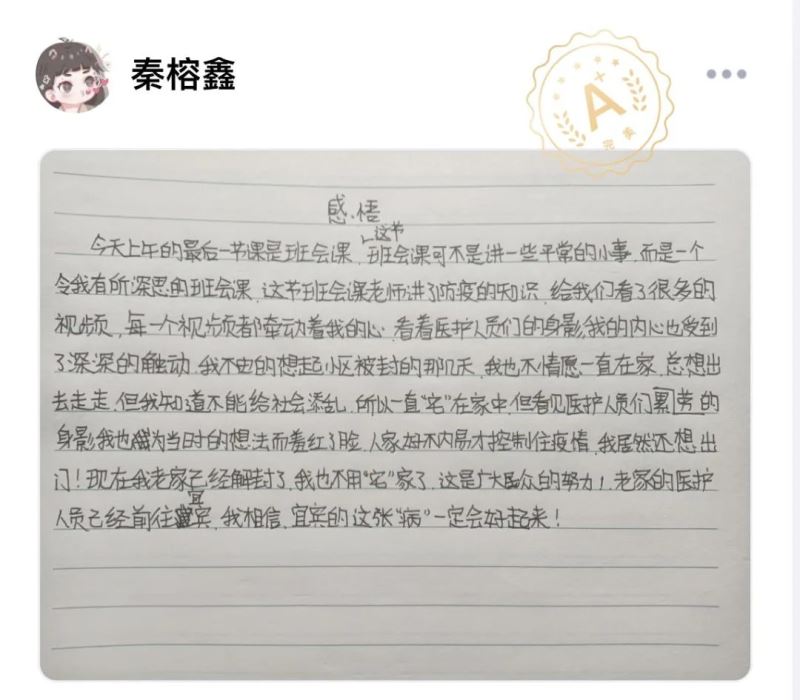 秦榕鑫
A+
完美
感悟
今天上午的最后一节课是班会课,这节班会课可不是讲一些平常的小事,而是一个
令我有所深思的班会课,这节班会课老师讲了防疫的知识,给我们看了很多的
视频,每一个视频都牵动着我的心,看着医护人员们的身影,我的内心也受到
了深深的触动,我不由的想起小区被封的那几天,我也不情愿一直在家,总想出
去走走,但我知道不能给社会添乱,所以一直“宅”在家中,但看见医护人员们累劳的
身影,我也为当时的想法而羞红了脸,人家好不容易才控制住疫情,我居然还想出
门!现在我老家已经解封了,我也不用“宅”家了,这是广大民众的努力!老家的医护
人员已经前往宜宾,我相信,宜宾的这张“病”一定会好起来!